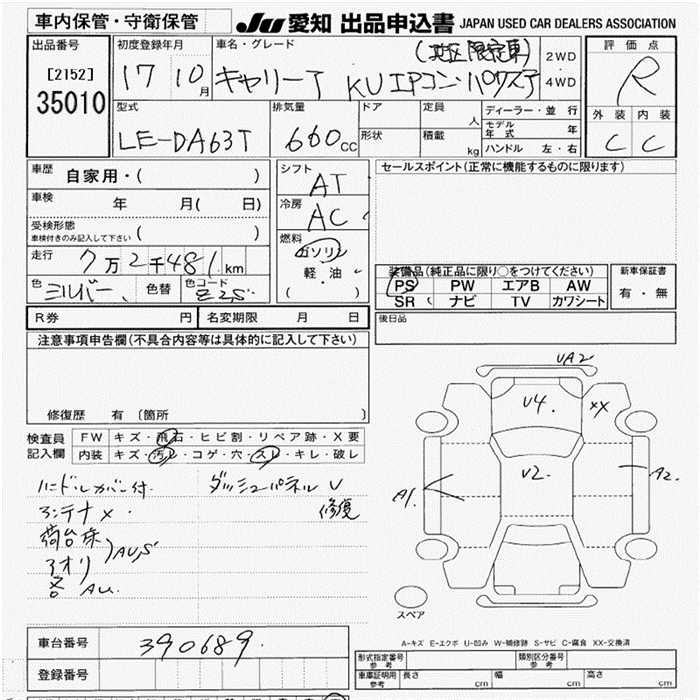 車内保管・守衛保管
JU 愛知 出品申込書 JAPAN USED CAR DEALERS ASSOCIATION
出品番号
[2152]
35010
初度登録年月
17 10月
車名・グレード
(地区限定車)
キャリーT KUエアコン・パワステ
2WD
4WD
評価点
R
型式
LE-DA63T
排気量
660cc
ドア
形状
定員
人
積載
kg
ディーラー・並行
モデル年式 年
ハンドル 左・右
外装 内装
C C
車歴 自家用・( )
車検 年 月( 日)
受検形態
車検付きのみ記入して下さい ( )
走行 7万2千481km
色 シルバー 色替 色コード Z2S
シフト
AT
冷房
AC
燃料
ガソリン
軽・油
( )
セールスポイント(正常に機能するものに限ります)
装備品(純正品に限り○をつけてください)
PS PW エアB AW
SR ナビ TV カワシート
新車保証書
有・無
R券 円 名変期限 月 日
後日品
注意事項申告欄(不具合内容等は具体的に記入して下さい)
修復歴 有 [箇所 ]
検査員
記入欄
FW キズ・飛石・ヒビ割・リペア跡・X要
内装 キズ・汚レ・コゲ・穴・スレ・キレ・破レ
ハンドルカバー付 ダッシュパネルU
アンテナ× 修復
荷台床
アオリ
AUS
各AU
UA2
U4
XX
U2
A1
A2
スペア
A-キズ E-エクボ U-凹み W-補修跡 S-サビ C-腐食 XX-交換済
車台番号 390689
登録番号
形式指定番号
参考
類別区分番号
参考
車庫証明用
参考
長さ cm 幅 cm 高さ cm